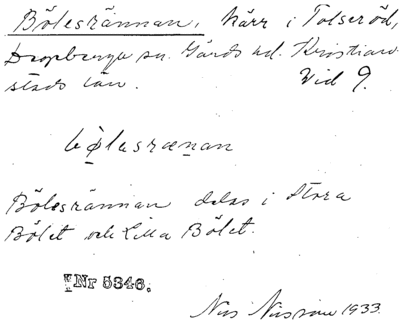 Bölesrännan, kärr i Tolseröd,
Degeberga sn. Gärds hd. Kristian-
stads län. Vid 9.
bølesrænan
Bölesrännan delas i Stora
Bölet och Lilla Bölet.
Nr 5346.
Nils Nilsson 1933.